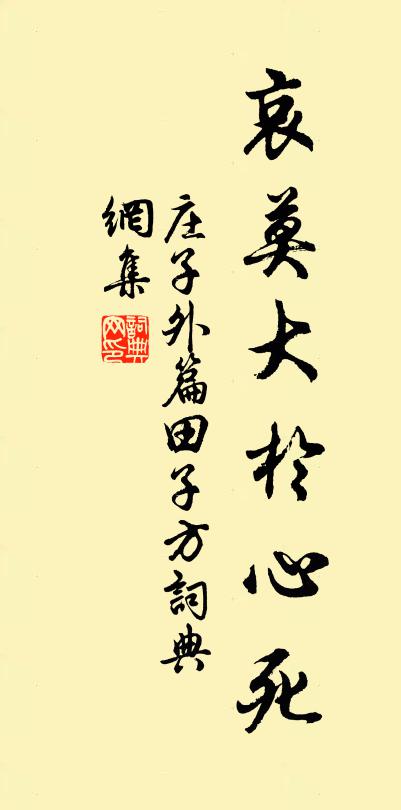 哀莫大於心死
庄子外篇田子方詞典
網集
詞典
网印